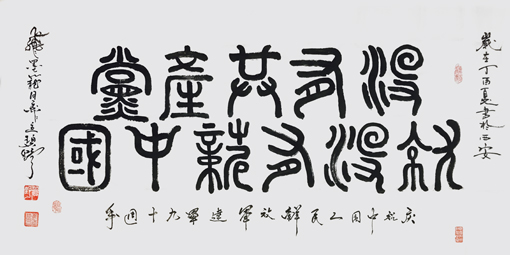 歲在丁酉夏書於西安
沒有共產黨
就沒有新中國
慶祝中国人民解放軍建軍九十週年